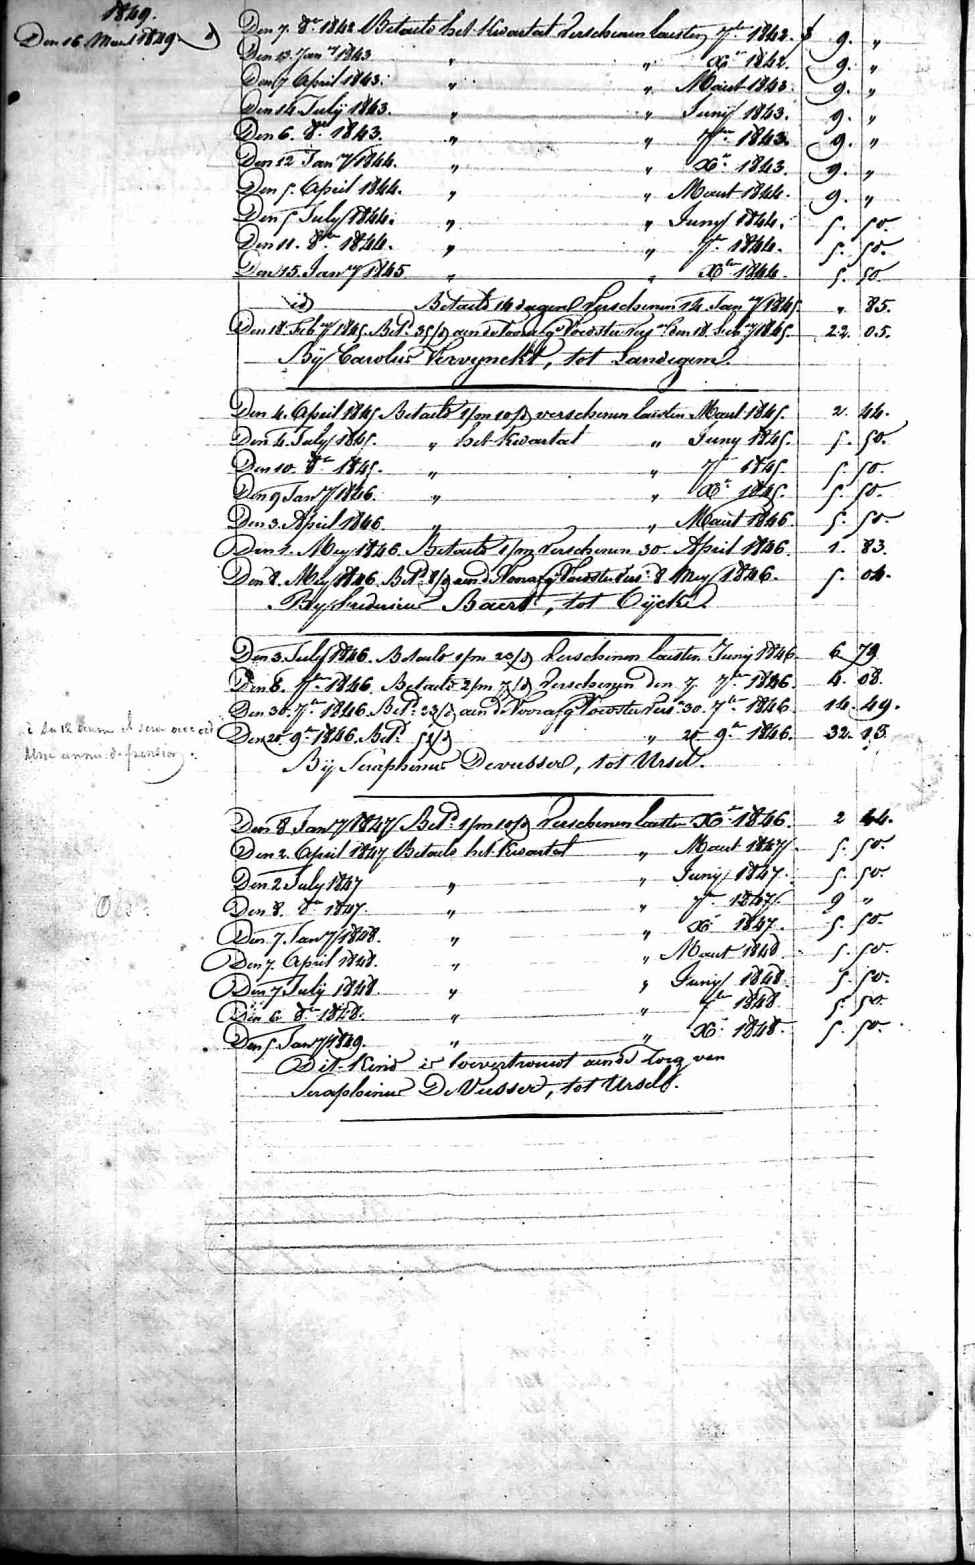 1849.
Den 16 Maart 1849
Den 7. 8re 1842 Betaald het Kwartaal Verschenen laasten 7re 1842. f 9. "
Den 13 Jany 1843 " " Xre 1842. 9. "
Den 7 April 1843. " " Maart 1843. 9. "
Den 14 July 1843. " " Juny 1843. 9. "
Den 6. 8re 1843. " " 7re 1843. 9. "
Den 12 Jany 1844. " " Xre 1843. 9. "
Den 5 April 1844. " " Maart 1844. 9. "
Den 5 July 1844. " " Juny 1844. 5. 50.
Den 11. 8re 1844. " " 7re 1844. 5. 50.
Den 15. Jany 1845. " " Xre 1844. 5. 50
id Betaald 14 dagen Verschenen 14 Jany 1845. " 85.
Den 18. Feby 1845. Betd. 35/d aen de Voorafge Voedster 18. Feby 1845. 22. 05.
By Carolus Vervynckt, tot Landegem.
Den 4. April 1845 Betaald 1/m 10/d verschenen laasten Maart 1845. 2. 44.
Den 4. July 1845. " het Kwartal " Juny 1845. 5. 50.
Den 10. 8re 1845. " " 7re 1845 5. 50.
Den 9 Jany 1846. " " Xre 1845. 5. 50.
Den 3. April 1846. " " Maart 1846. 5. 50.
Den 1. Mey 1846. Betaald 1/m Verschenen 30 April 1846. 1. 83.
Den 8. Mey 1846. Betd. 8/d aen de Voorafge Voedster 8 Mey 1846. 5. 04.
By Baert, tot Oycke.
Den 3. July 1846. Betaald 1/m 23/d Verschenen laasten Juny 1846. 6 79
Den 8. 7re 1846. Betaald 2/m 7/d Verschenen den 7. 7re 1846. 4. 08.
Den 30. 7re 1846. Betd. 23/d aen de Voorafge Voedster 30. 7re 1846. 14. 49.
Den 20. 9re 1846. Betd. 51/d " 20 9re 1846. 32. 13.
il sera
de pension
By Seraphinus Devusser, tot Ursel.
Den 8 Jany 1847 Betd. 1/m 10/d Verschenen laasten Xre 1846. 2 44.
Den 2. April 1847 Betaald het Kwartal " Maart 1847 5. 50.
Den 2 July 1847 " " Juny 1847. 5. 50
Den 8. 8re 1847. " " 7re 1847. 9 "
Den 7. Jany 1848. " " Xre 1847. 5. 50.
Den 7. April 1848. " " Maart 1848 5. 50.
Den 7 July 1848. " " Juny 1848. 5. 50.
Den 6. 8re 1848. " " 7re 1848 5. 50.
Den 5 Jany 1849. " " Xre 1848. 5. 50.
Dit Kind is toevertrouwt aende Zorg van
Seraphinus De Vusser, tot Ursel.